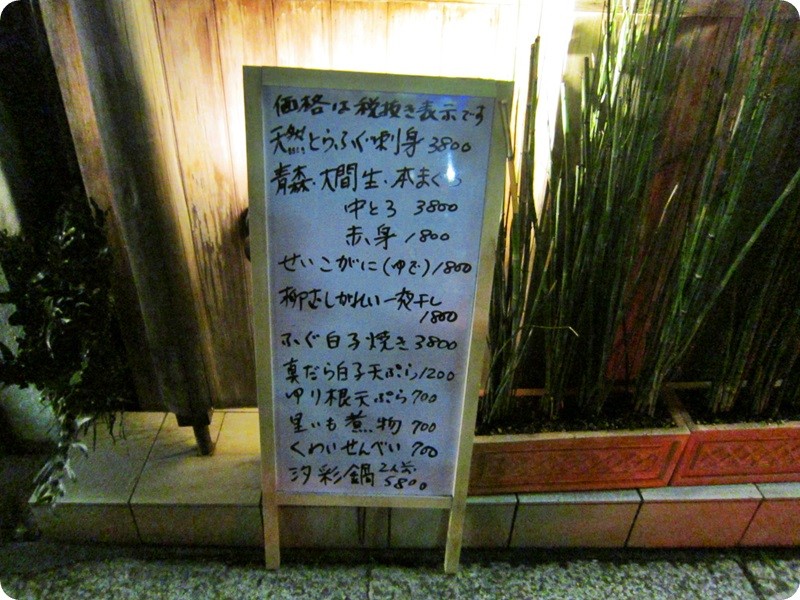 価格は税抜き表示です
天然とらふぐ刺身 3800
青森・大間 生・本まぐろ
中とろ 3800
赤身 1800
せいこがに(ゆで) 1800
柳むしがれい一夜干し
1800
ふぐ白子焼き 3800
真だら白子天ぷら 1200
ゆり根天ぷら 700
里いも煮物 700
くわいせんべい 700
汐彩鍋 2人前 5800